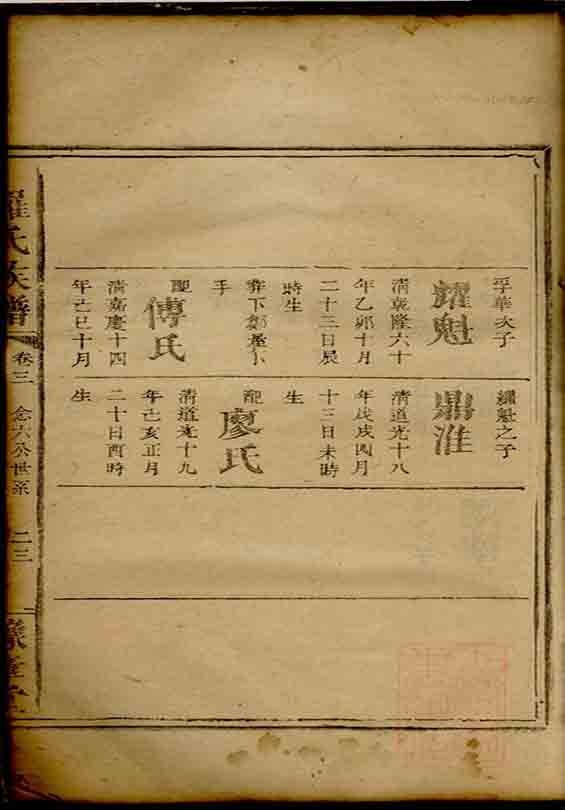 孚華次子
耀魁
清乾隆六十
年乙卯十月
二十三日辰
時生
葬下鄒屋
手
配
傅氏
清嘉慶十四
年己巳十月
耀魁之子
鼎淮
清道光十八
年戊戌四月
十三日未時
生
配
廖氏
清道光十九
年己亥正月
二十日酉時
生
羅氏族譜
卷三
念六公世系
二三